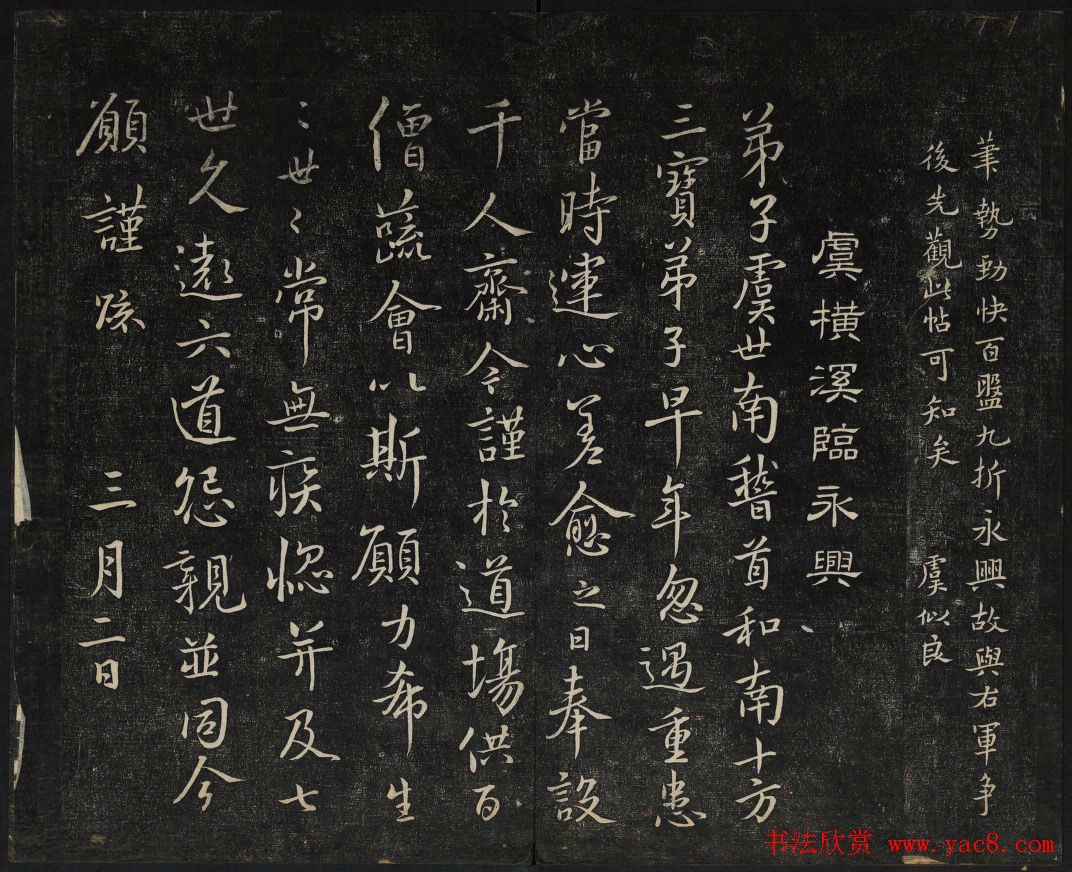 筆勢勁快百盤九折永興故與右軍争
後先觀此帖可知矣 虞似良
虞橫溪臨永興
弟子虞世南稽首和南十方
三寶弟子早年忽遇重患
當時運心差愈之日奉設
千人齋今謹於道場供百
僧蔬會以斯願力希生
〻世〻常無疾惱并及七
世久遠六道怨親並同今
願謹疏 三月二日
书法欣赏 www.yac8.com